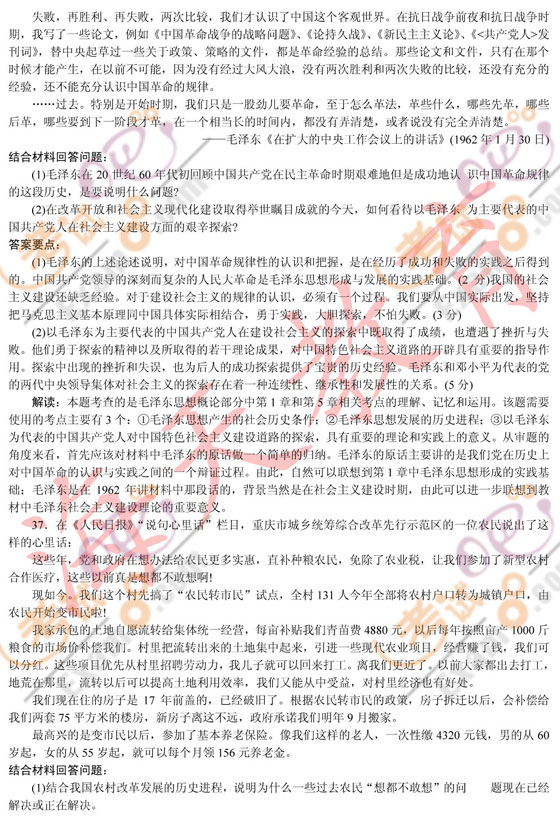 失败，再胜利、再失败，两次比较，我们才认识了中国这个客观世界。在抗日战争前夜和抗日战争时
期，我写了一些论文，例如《中国革命战争的战略问题》、《论持久战》、《新民主主义论》、《<共产党人>发
刊词》，替中央起草过一些关于政策、策略的文件，都是革命经验的总结。那些论文和文件，只有在那个
时候才能产生，在以前不可能，因为没有经过大风大浪，没有两次胜利和两次失败的比较，还没有充分的
经验，还不能充分认识中国革命的规律。
……过去。特别是开始时期，我们只是一股劲儿要革命，至于怎么革法，革些什么，哪些先革，哪些
后革，哪些要到下一阶段才革，在一个相当长的时间内，都没有弄清楚，或者说没有完全弄清楚。
——毛泽东《在扩大的中央工作会议上的讲话》(1962 年 1 月 30 日)
结合材料回答问题：
(1)毛泽东在 20 世纪 60 年代初回顾中国共产党在民主革命时期艰难地但是成功地认 识中国革命规律
的这段历史，是要说明什么问题?
(2)在改革开放和社会主义现代化建设取得举世瞩目成就的今天，如何看待以毛泽东 为主要代表的中
国共产党人在社会主义建设方面的艰辛探索?
答案要点：
(1)毛泽东的上述论述说明，对中国革命规律性的认识和把握，是在经历了成功和失败的实践之后得到
的。中国共产党领导的深刻而复杂的人民大革命是毛泽东思想形成与发展的实践基础。(2 分)我国的社会
主义建设还缺乏经验。对于建设社会主义的规律的认识，必须有一个过程。我们要从中国实际出发，坚持
把马克思主义基本原理同中国具体实际相结合，勇于实践，大胆探索，不怕失败。(3 分)
(2)以毛泽东为主要代表的中国共产党人在建设社会主义的探索中既取得了成绩，也遭遇了挫折与失
败。他们勇于探索的精神以及所取得的若干理论成果，对中国特色社会主义道路的开辟具有重要的指导作
用。探索中出现的挫折和失误，也为后人的成功探索提供了宝贵的历史经验。毛泽东和邓小平为代表的党
的两代中央领导集体对社会主义的探索存在着一种连续性、继承性和发展性的关系。(5 分)
解读：本题考查的是毛泽东思想概论部分中第 1 章和第 5 章相关考点的理解、记忆和运用。该题需要
使用的考点主要有 3 个：①毛泽东思想产生的社会历史条件；②毛泽东思想发展的历史进程；③以毛泽东
为代表的中国共产党人对中国特色社会主义建设道路的探索，具有重要的理论和实践上的意义。从审题的
角度来看，首先应该对材料中毛泽东的原话做一个简单的归纳。毛泽东的原话主要讲的是我们党在历史上
对中国革命的认识与实践之间的一个辩证过程。由此，自然可以联想到第 1 章中毛泽东思想形成的实践基
础；毛泽东是在 1962 年讲材料中那段话的，背景当然是在社会主义建设时期，由此可以进一步联想到教
材中毛泽东社会主义建设理论的重要意义。
37．在《人民日报》“说句心里话”栏目，重庆市城乡统筹综合改革先行示范区的一位农民说出了这
样的心里话：
这些年，党和政府在想办法给农民更多实惠，直补种粮农民，免除了农业税，让我们参加了新型农村
合作医疗，这些以前真是想都不敢想啊!
现如今。我们这个村先搞了“农民转市民”试点，全村 131 人今年全部将农村户口转为城镇户口，由
农民开始变市民啦!
我家承包的土地自愿流转给集体统一经营，每亩补贴我们青苗费 4880 元，以后每年按照亩产 1000 斤
粮食的市场价补偿我们。村里把流转出来的土地集中起来，引进一些现代农业项目，经营赚了钱，我们可
以分红。这些项目优先从村里招聘劳动力，我儿子就可以回来打工。离我们更近了。以前大家都出去打工，
地荒在那里，流转以后可以提高土地利用效率，我们又能从中受益，对村里经济也有好处。
我们现在住的房子是 17 年前盖的，已经破旧了。根据农民转市民的政策，房子拆迁以后，会补偿给
我们两套 75 平方米的楼房，新房子离这不远，政府承诺我们明年 9 月搬家。
最高兴的是变市民以后，参加了基本养老保险。像我们这样的老人，一次性缴 4320 元钱，男的从 60
岁起，女的从 55 岁起，就可以每个月领 156 元养老金。
结合材料回答问题：
(1)结合我国农村改革发展的历史进程，说明为什么一些过去农民“想都不敢想”的问 题现在已经
解决或正在解决。